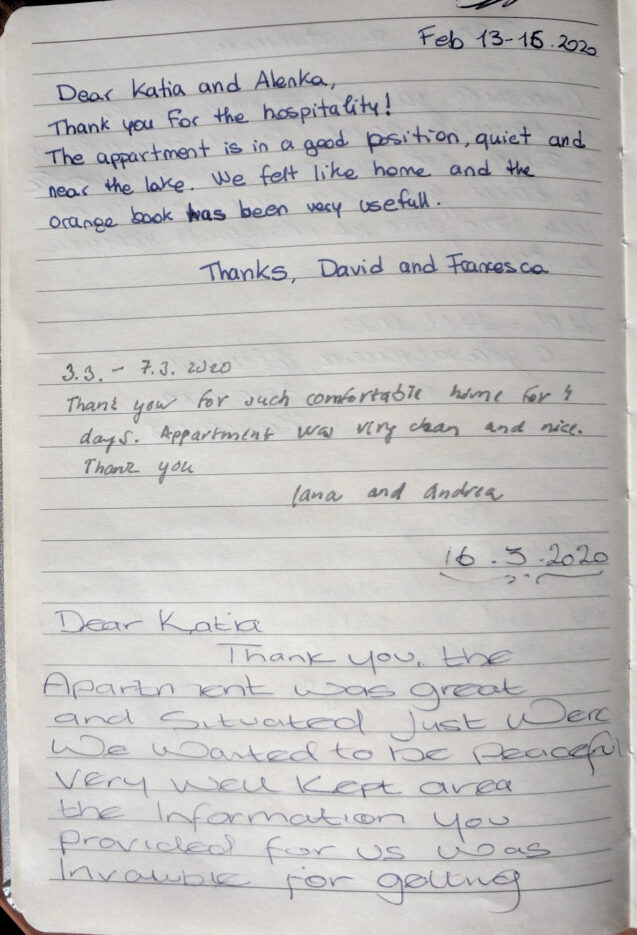 Feb 13-16.2020
Dear Katia and Alenka,
Thank you for the hospitality!
The appartment is in a good position, quiet and
near the lake. We felt like home and the
orange book has been very usefull.
Thanks, David and Francesca
3.3. - 7.3. 2020
Thank you for such comfortable home for 4
days. Appartment was very clean and nice.
Thank you
Jana and Andrea
16.3.2020
Dear Katia
Thank you, the
Apartment was great
and Situated Just Were
We Wanted to be Peaceful
Very Well Kept area
the Information you
Provided for us was
Invaluble for getting